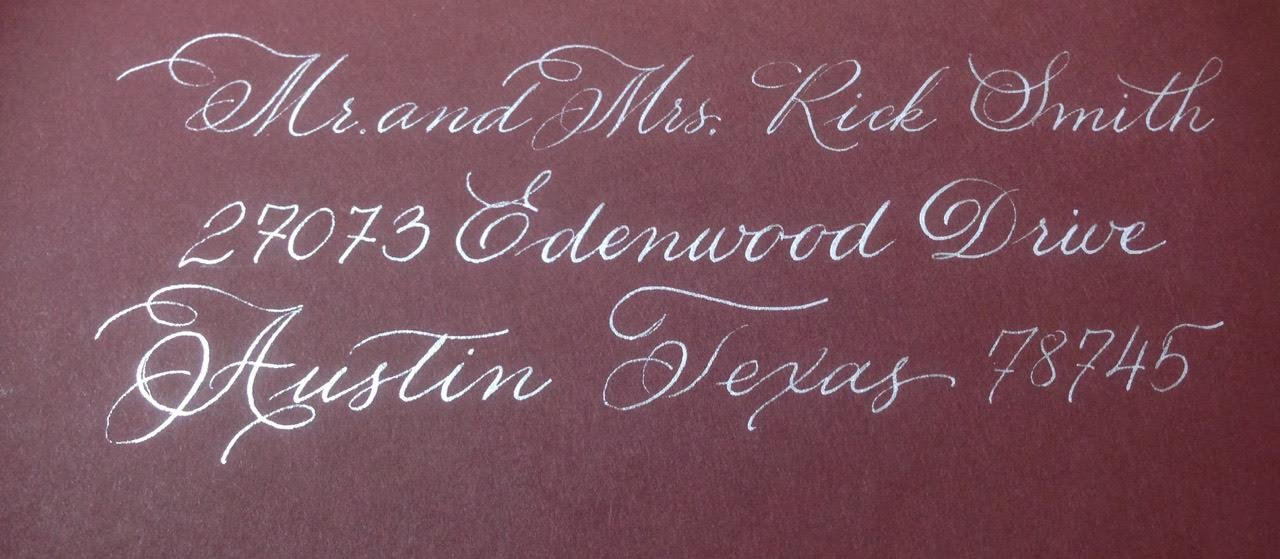 Mr. and Mrs. Rick Smith
27073 Edenwood Drive
Austin Texas 78745